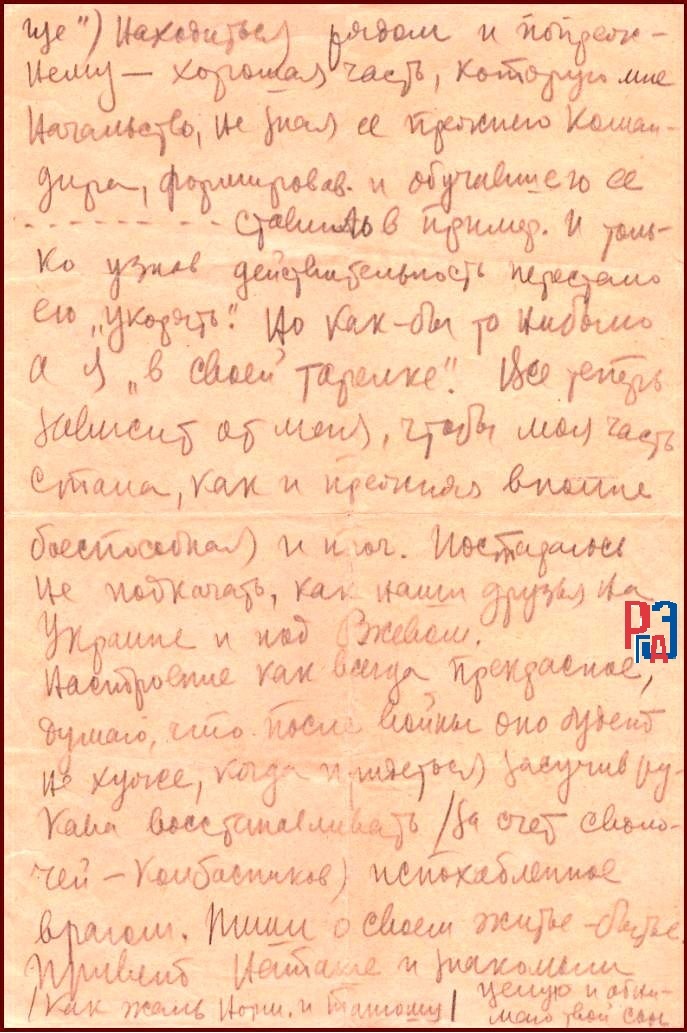 ще") Находиться рядом и попреж-
нему — хорошая часть, которую мне
Начальство, не зная ее прежнего Коман-
дира, формировав. и обучавшего ее
- - - - - - - - - ставило в пример. И толь-
ко узнав действительность перестало
его „укорять". Но как-бы то нибыло
а я „в своей тарелке". Все теперь
зависит от меня, чтобы моя часть
стала, как и прежняя вполне
боеспособная) и проч. Постараюсь
не подкачать, как наши друзья на
Украине и под Ржевом.
Настроение как всегда прекрасное,
думаю, что после войны оно будет
не хуже, когда придеться засучив ру-
кава восстанавливать /за счет сволο-
чей – колбасников) испохабленное
врагом. Пиши о своем житье-бытье.
Привет Наташе и знакомым
/как жаль Норм. и / целую и обни-
маю твой сын
РГАЭ